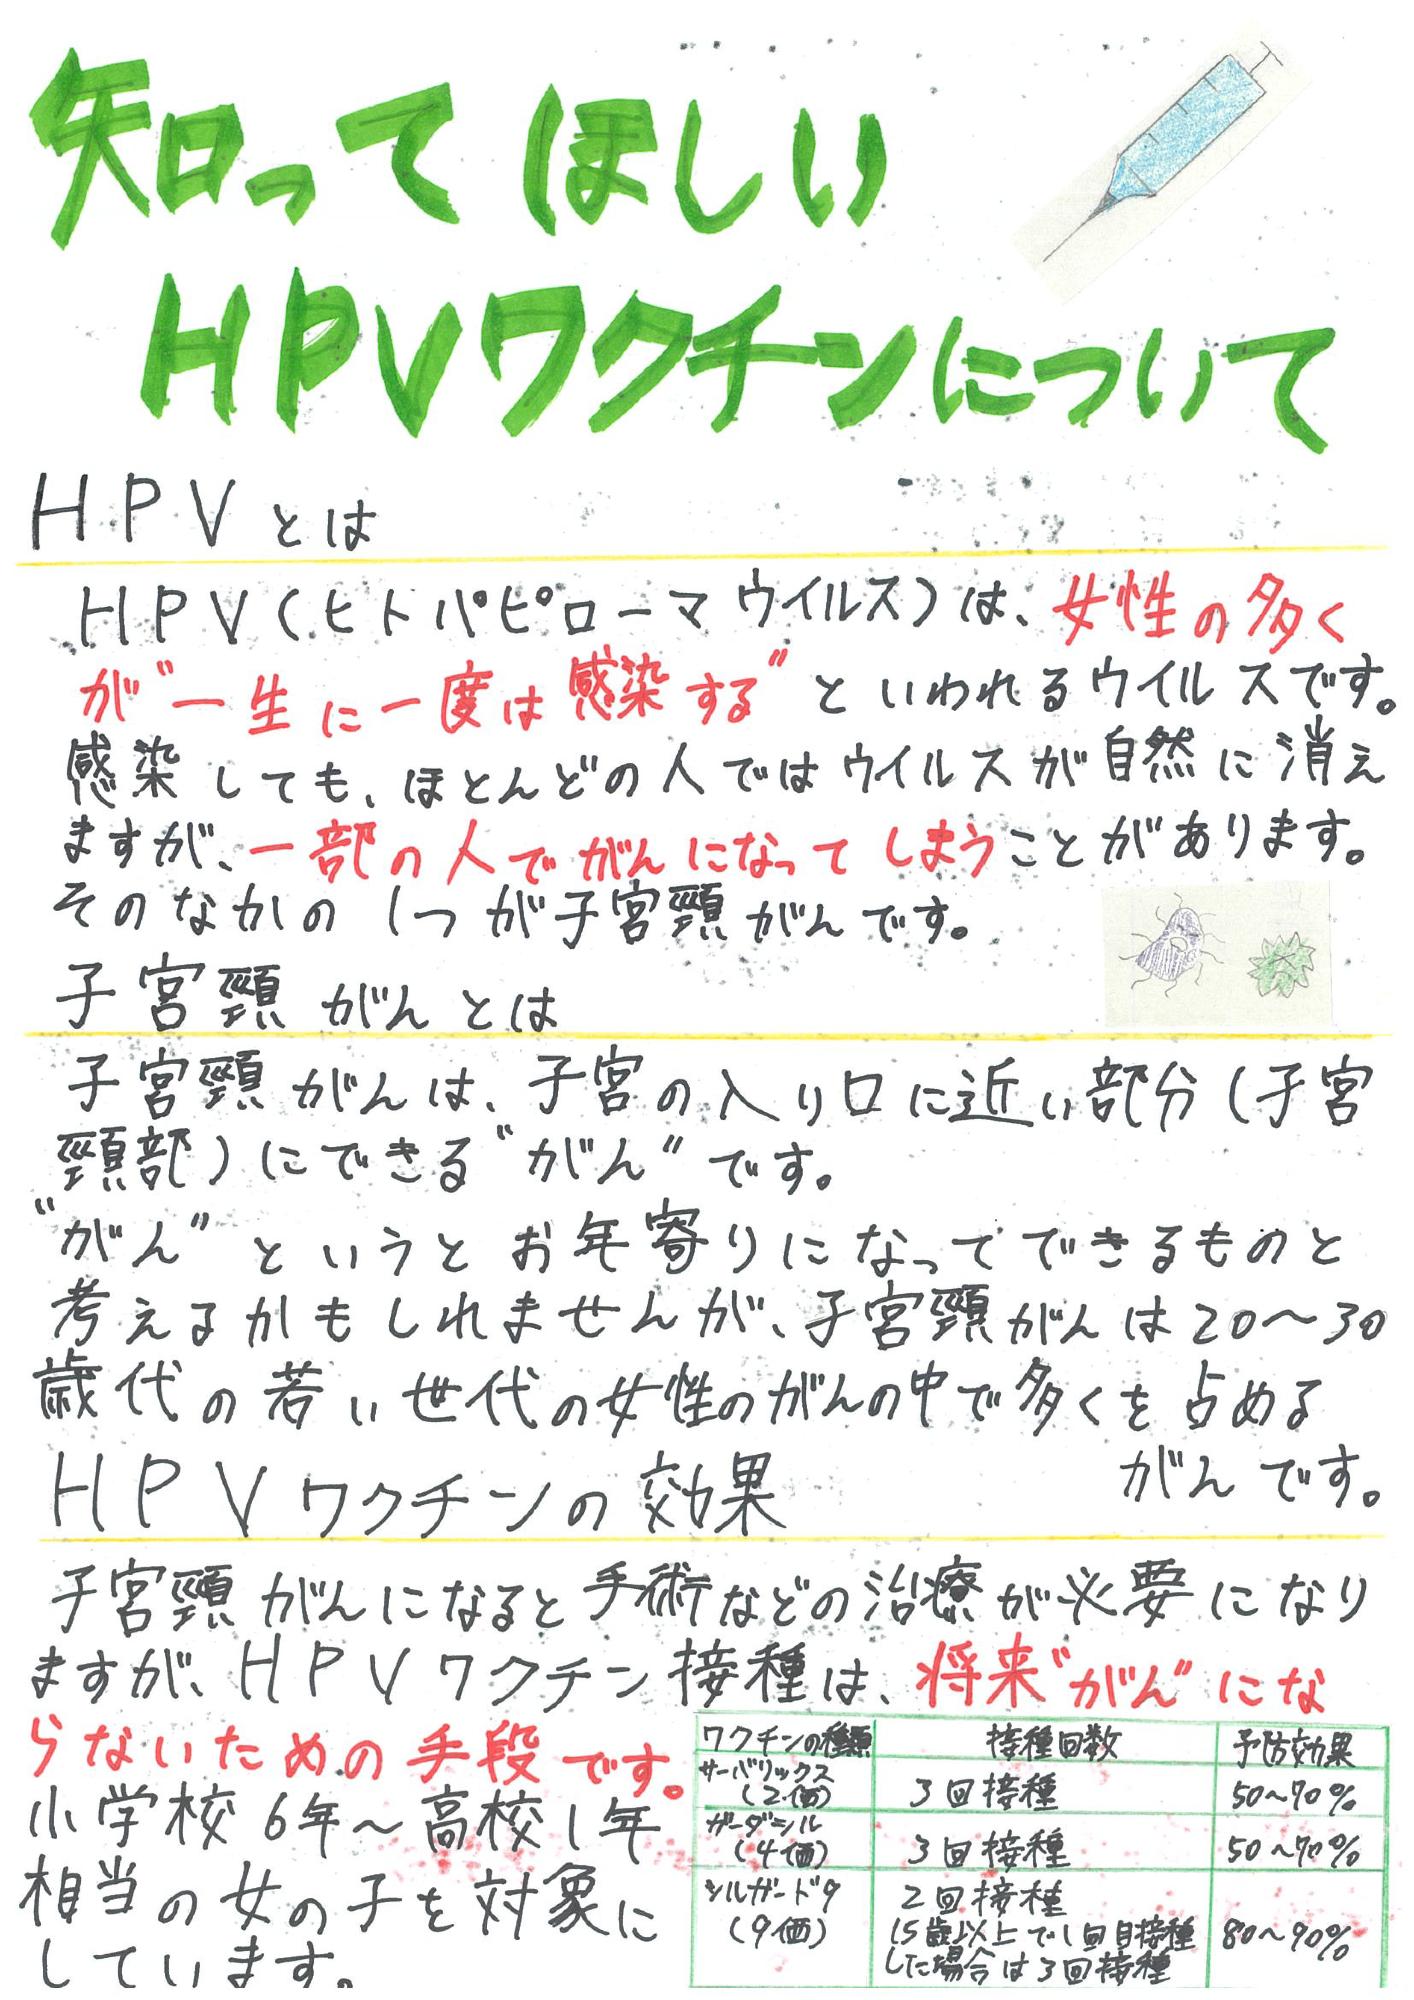 知ってほしい
HPVワクチンについて
HPVとは
HPV(ヒトパピローマウイルス)は、女性の多く
が"一生に一度は感染する"といわれるウイルスです。
感染しても、ほとんどの人ではウイルスが自然に消え
ますが、一部の人でがんになってしまうことがあります。
そのなかの1つが子宮頸がんです。
子宮頸がんとは
子宮頸がんは、子宮の入り口に近い部分(子宮
頸部)にできる"がん"です。
"がん"というとお年寄りになってできるものと
考えるかもしれませんが、子宮頸がんは20〜30
歳代の若い世代の女性のがんの中で多くを占める
がんです。
HPVワクチンの効果
子宮頸がんになると手術などの治療が必要になり
ますが、HPVワクチン接種は、将来"がん"にな
らないための手段です。
小学校6年〜高校1年
相当の女の子を対象に
しています。
ワクチンの種類 接種回数 予防効果
サーバリックス
(2価) 3回接種 50〜70%
ガーダシル
(4価) 3回接種 50〜70%
シルガード9 2回接種
(9価) 15歳以上で1回目接種 80〜90%
した場合は3回接種